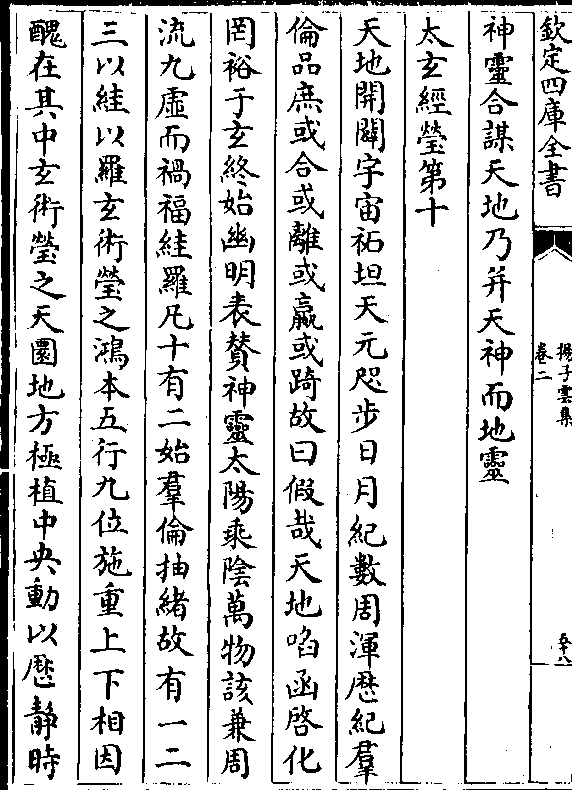 欽定四庫全書
揚子雲集
卷二
五十八
神靈合謀天地乃并天神而地靈
太玄經瑩第十
天地開闢宇宙祏坦天元咫步日月紀數周渾歴紀羣
倫品庶或合或離或羸或踦故曰假哉天地啗函啓化
罔裕于玄終始幽明表賛神靈太陽乘陰萬物該兼周
流九虛而禍福絓羅凡十有二始羣倫抽緒故有一二
三以絓以羅玄術瑩之鴻本五行九位施重上下相因
醜在其中玄術瑩之天圜地方極植中央動以歴静時